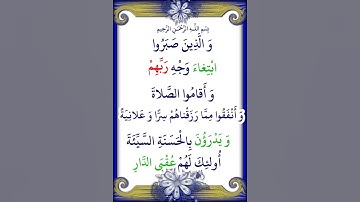 بِسْمِ اللَّهِ الرَّحْمَنِ الرَّحِيمِ
وَ الَّذِينَ صَبَرُوا
ابْتِغَاءَ وَجْهِ رَبِّهِمْ
وَ أَقَامُوا الصَّلَاةَ
وَ أَنْفَقُوا مِمَّا رَزَقْنَاهُمْ سِرًّا وَ عَلَانِيَةً
وَ يَدْرَؤُنَ بِالْحَسَنَةِ السَّيِّئَةَ
أُولئِكَ لَهُمْ عُقْبَى الدَّارِ